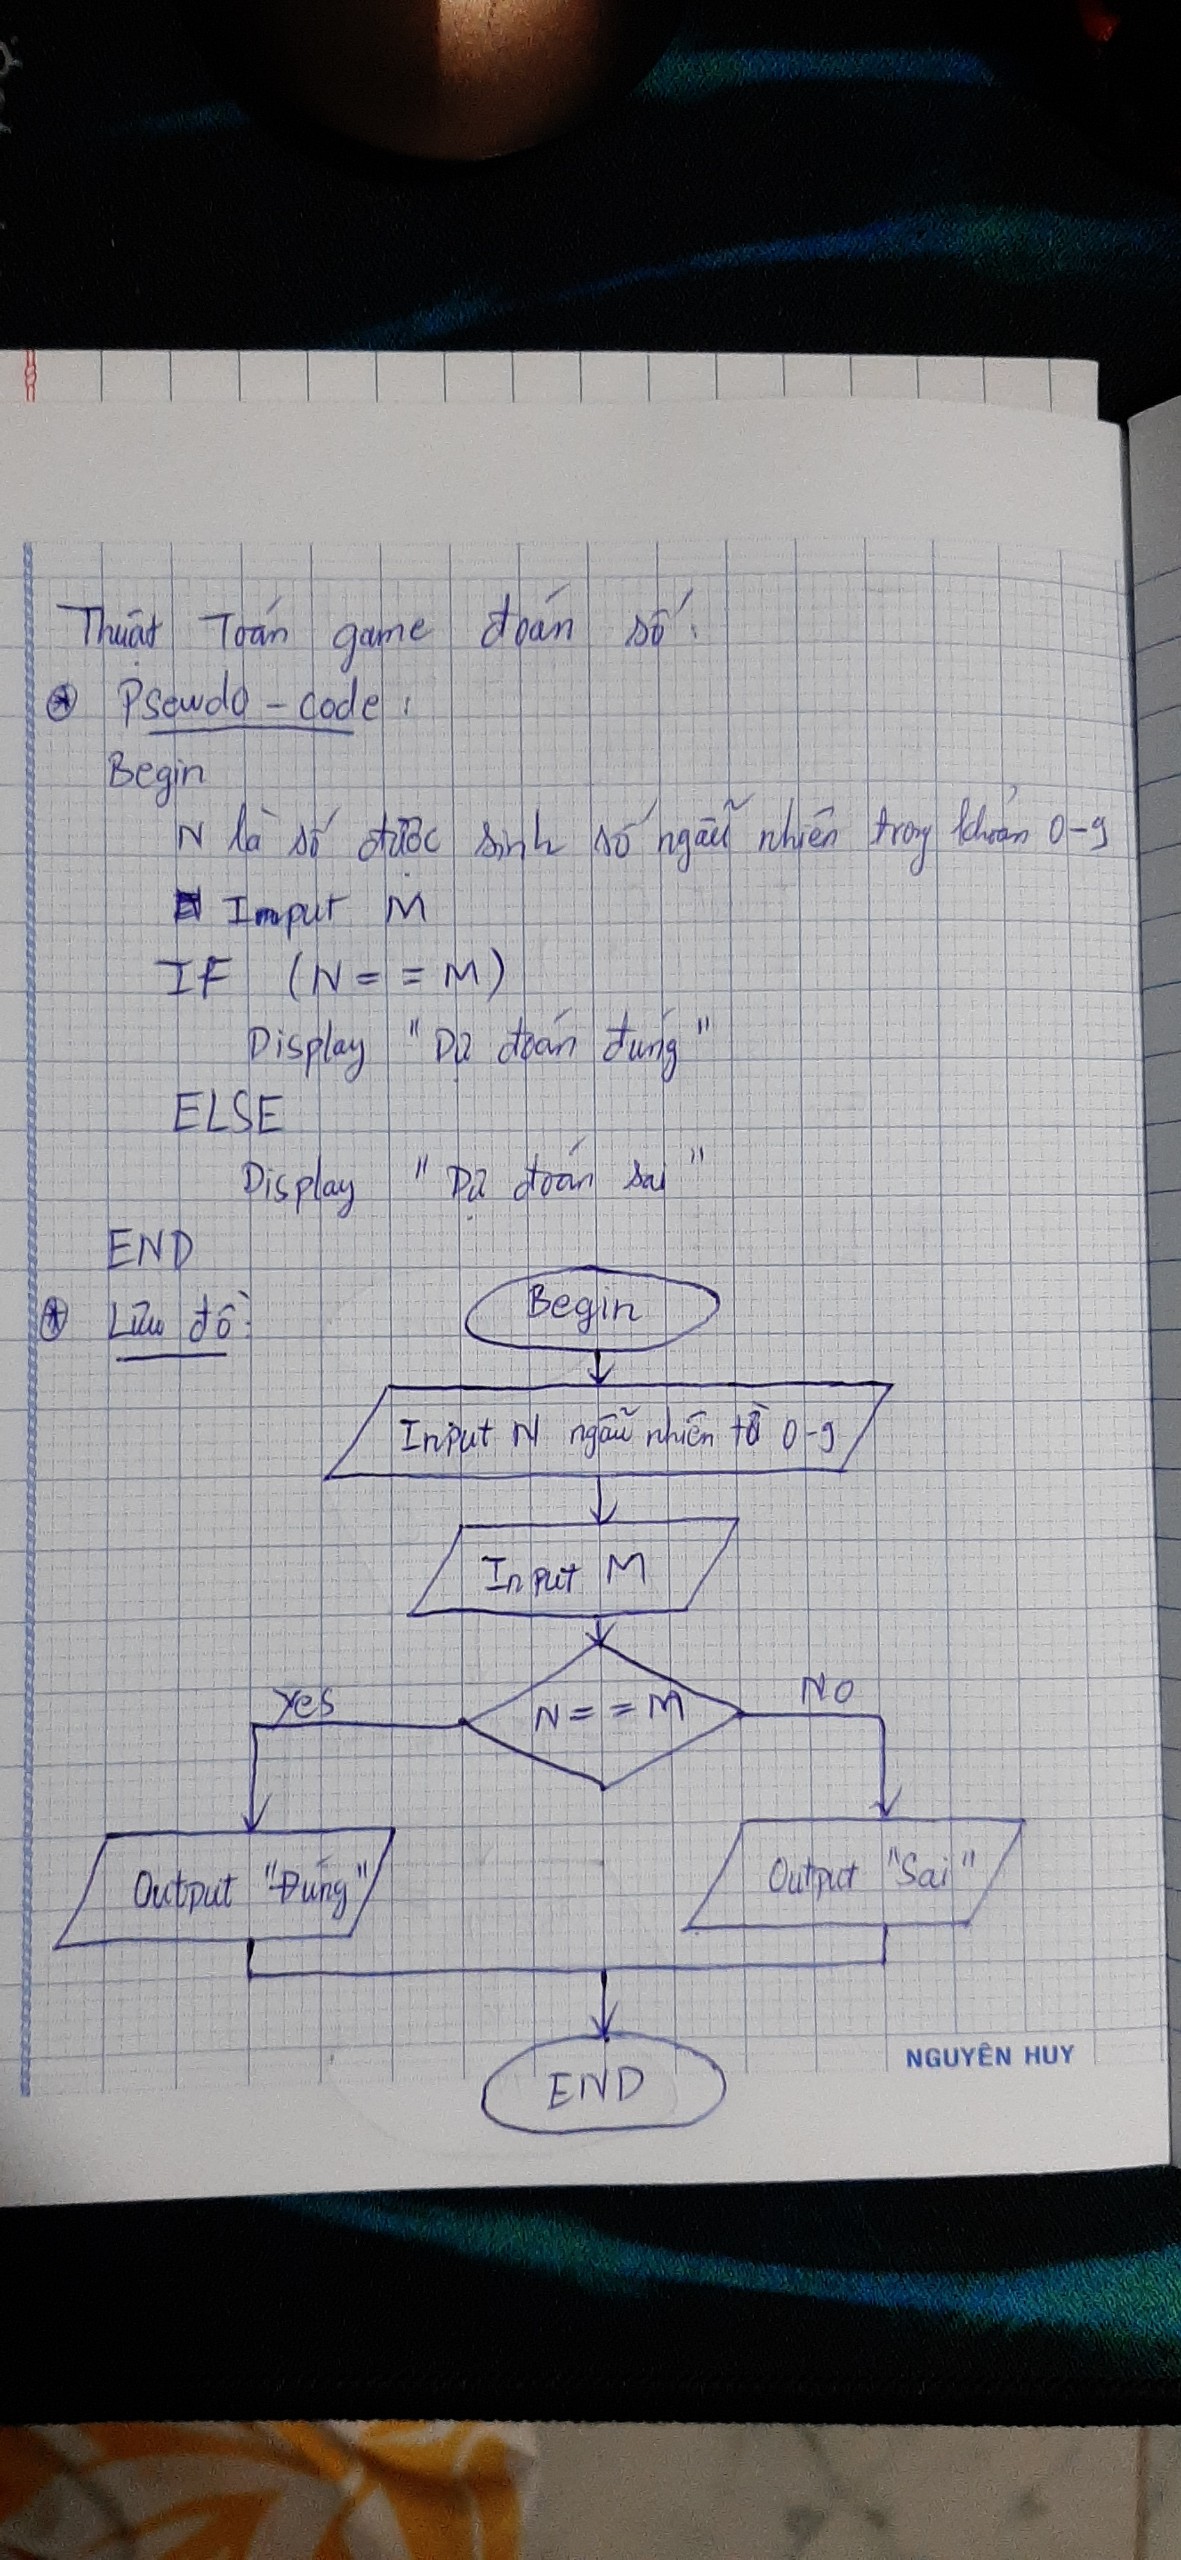 Thuật Toán game đoán số:
Psewdo - code:
Begin
N là số được sinh số ngẫu nhiên trong khoản 0-9
Input M
IF (N = = M)
Display "Dự đoán đúng"
ELSE
Display "Dự đoán sai"
END
Lưu đồ:
Begin
Input N ngẫu nhiên từ 0-9
Input M
N = = M
Yes
No
Output "Đúng"
Output "Sai"
END
NGUYÊN HUY